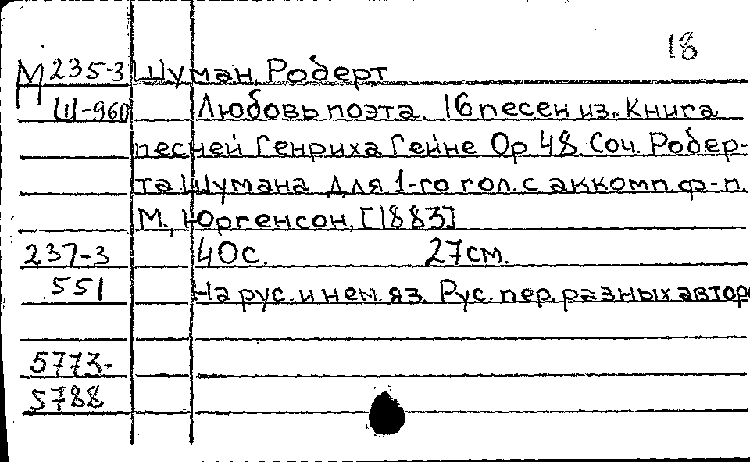 18
М 235-3 Шуман, Роберт
Ш-960 Любовь поэта. 16 песен из „Книга
песней Генриха Гейне Op 48. Соч. Робер-
та Шумана для 1-го гол. с аккомп ф-п.
М., Юргенсон, [1883]
237-3 40с. 27см.
551 На рус. и нем. яз. Рус. пер. разных авторо
5773-
5788